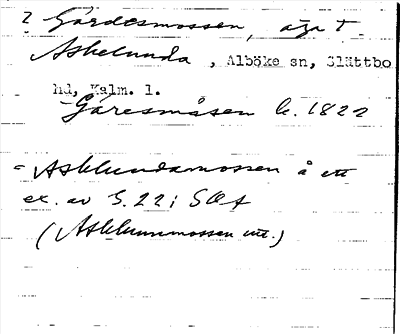 2 Gårdesmossen, äga t.
Askelunda, Alböke sn, Slättbo
hd, Kalm. l.
Gåresmåsen k. 1822
= Asklundamossen å ett
ex. av S. 22 i SOA
(Asklunnmossen utt.)